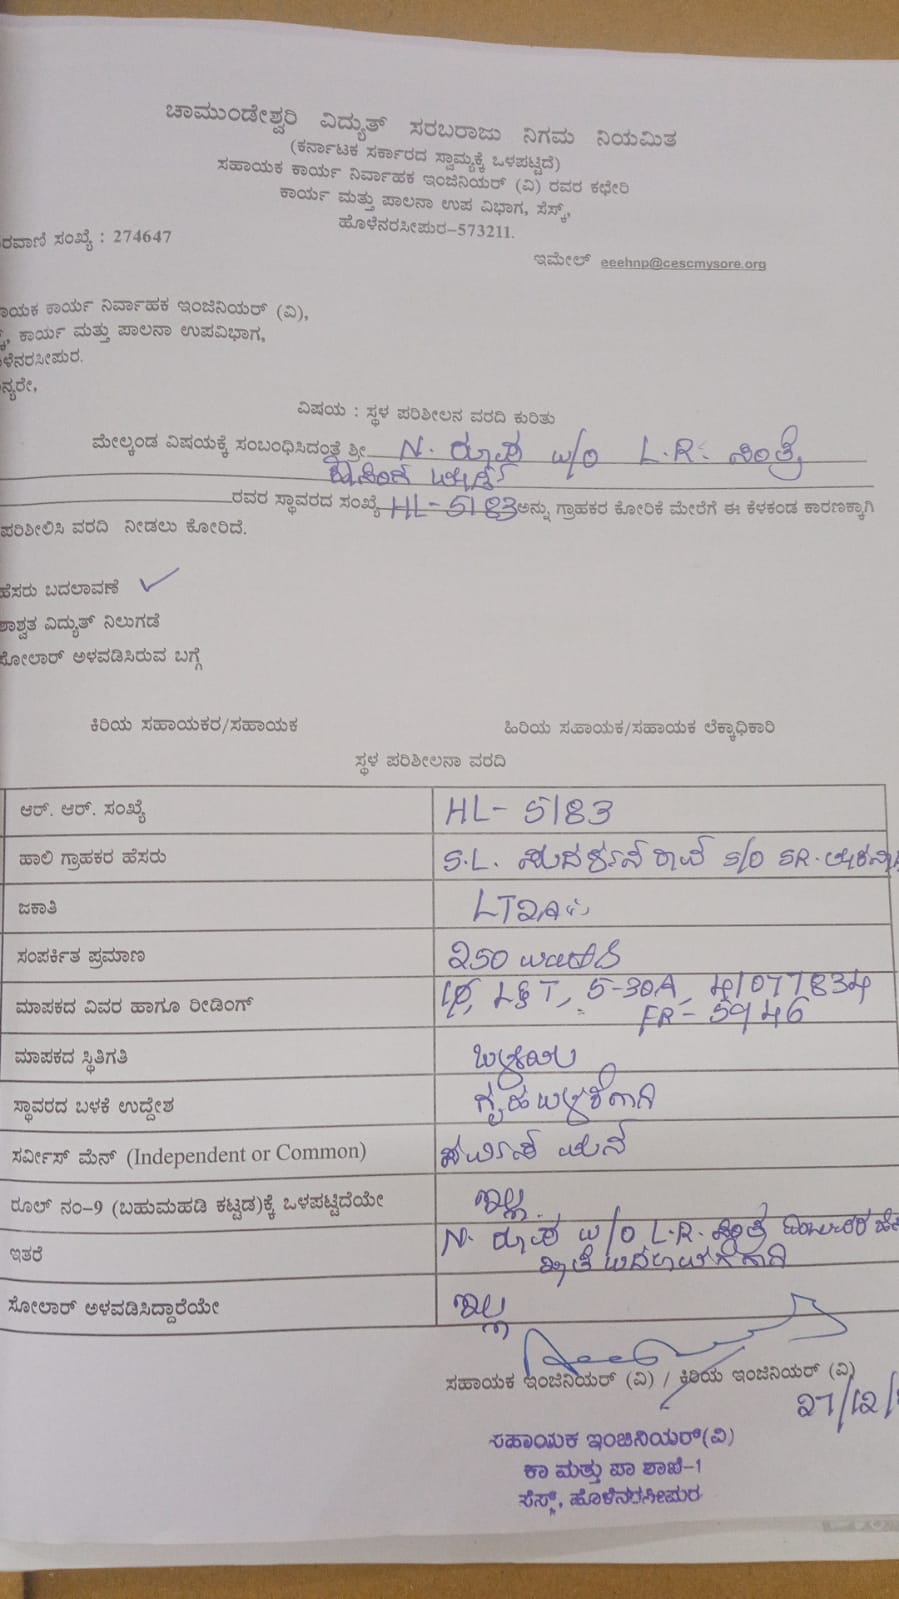 ಚಾಮುಂಡೇಶ್ವರಿ ವಿದ್ಯುತ್ ಸರಬರಾಜು ನಿಗಮ ನಿಯಮಿತ
(ಕರ್ನಾಟಕ ಸರ್ಕಾರದ ಸ್ವಾಮ್ಯಕ್ಕೆ ಒಳಪಟ್ಟಿದೆ)
ಸಹಾಯಕ ಕಾರ್ಯ ನಿರ್ವಾಹಕ ಇಂಜಿನಿಯರ್ (ವಿ) ರವರ ಕಛೇರಿ
ಕಾರ್ಯ ಮತ್ತು ಪಾಲನಾ ಉಪ ವಿಭಾಗ, ಸೆಸ್ಕ್,
ಹೊಳೆನರಸೀಪುರ-573211.
ರವಾಣಿ ಸಂಖ್ಯೆ : 274647
ಇಮೇಲ್ eeehnp@cescmysore.org
ಾಯಕ ಕಾರ್ಯ ನಿರ್ವಾಹಕ ಇಂಜಿನಿಯರ್ (ವಿ),
, ಕಾರ್ಯ ಮತ್ತು ಪಾಲನಾ ಉಪವಿಭಾಗ,
ಳೆನರಸೀಪುರ.
ನ್ಯರೇ,
ವಿಷಯ : ಸ್ಥಳ ಪರಿಶೀಲನ ವರದಿ ಕುರಿತು
ಮೇಲ್ಕಂಡ ವಿಷಯಕ್ಕೆ ಸಂಬಂಧಿಸಿದಂತೆ ಶ್ರೀ N. ರೂಪ w/o L.R.
ರವರ ಸ್ಥಾವರದ ಸಂಖ್ಯೆ HL-5183 ಅನ್ನು ಗ್ರಾಹಕರ ಕೋರಿಕೆ ಮೇರೆಗೆ ಈ ಕೆಳಕಂಡ ಕಾರಣಕ್ಕಾಗಿ
ಪರಿಶೀಲಿಸಿ ವರದಿ ನೀಡಲು ಕೋರಿದೆ.
ಹೆಸರು ಬದಲಾವಣೆ ✓
ಶಾಶ್ವತ ವಿದ್ಯುತ್ ನಿಲುಗಡೆ
ಸೋಲಾರ್ ಅಳವಡಿಸಿರುವ ಬಗ್ಗೆ
ಕಿರಿಯ ಸಹಾಯಕರ/ಸಹಾಯಕ ಹಿರಿಯ ಸಹಾಯಕ/ಸಹಾಯಕ ಲೆಕ್ಕಾಧಿಕಾರಿ
ಸ್ಥಳ ಪರಿಶೀಲನಾ ವರದಿ
ಆರ್. ಆರ್. ಸಂಖ್ಯೆ HL- 5183
ಹಾಲಿ ಗ್ರಾಹಕರ ಹೆಸರು S.L. ಸುದರ್ಶನ ರಾವ್ S/O SR.
ಜಕಾತಿ LT2A
ಸಂಪರ್ಕಿತ ಪ್ರಮಾಣ 250
ಮಾಪಕದ ವಿವರ ಹಾಗೂ ರೀಡಿಂಗ್ L&T, 5-30A, 41077834
FR- 5946
ಮಾಪಕದ ಸ್ಥಿತಿಗತಿ
ಸ್ಥಾವರದ ಬಳಕೆ ಉದ್ದೇಶ ಗೃಹಬಳಕೆಗಾಗಿ
ಸರ್ವೀಸ್ ಮೆನ್ (Independent or Common)
ರೂಲ್ ನಂ-9 (ಬಹುಮಹಡಿ ಕಟ್ಟಡ)ಕ್ಕೆ ಒಳಪಟ್ಟಿದೆಯೇ ಇಲ್ಲ
ಇತರೆ N. ರೂಪ w/o L.R.
ಖಾತೆ ಬದಲಾವಣೆಗಾಗಿ
ಸೋಲಾರ್ ಅಳವಡಿಸಿದ್ದಾರೆಯೇ ಇಲ್ಲ
ಸಹಾಯಕ ಇಂಜಿನಿಯರ್ (ವಿ) / ಕಿರಿಯ ಇಂಜಿನಿಯರ್ (ವಿ)
27/12/
ಸಹಾಯಕ ಇಂಜಿನಿಯರ್(ವಿ)
ಕಾ ಮತ್ತು ಪಾ ಶಾಖೆ-1
ಸೆಸ್ಕ್, ಹೊಳೆನರಸೀಪುರ